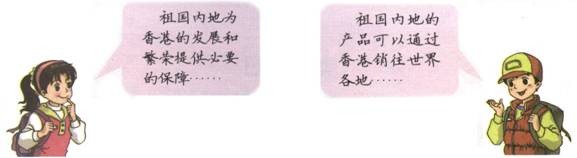 祖国内地为
香港的发展和
繁荣提供必要
的保障……
祖国内地的
产品可以通过
香港销往世界
各地……